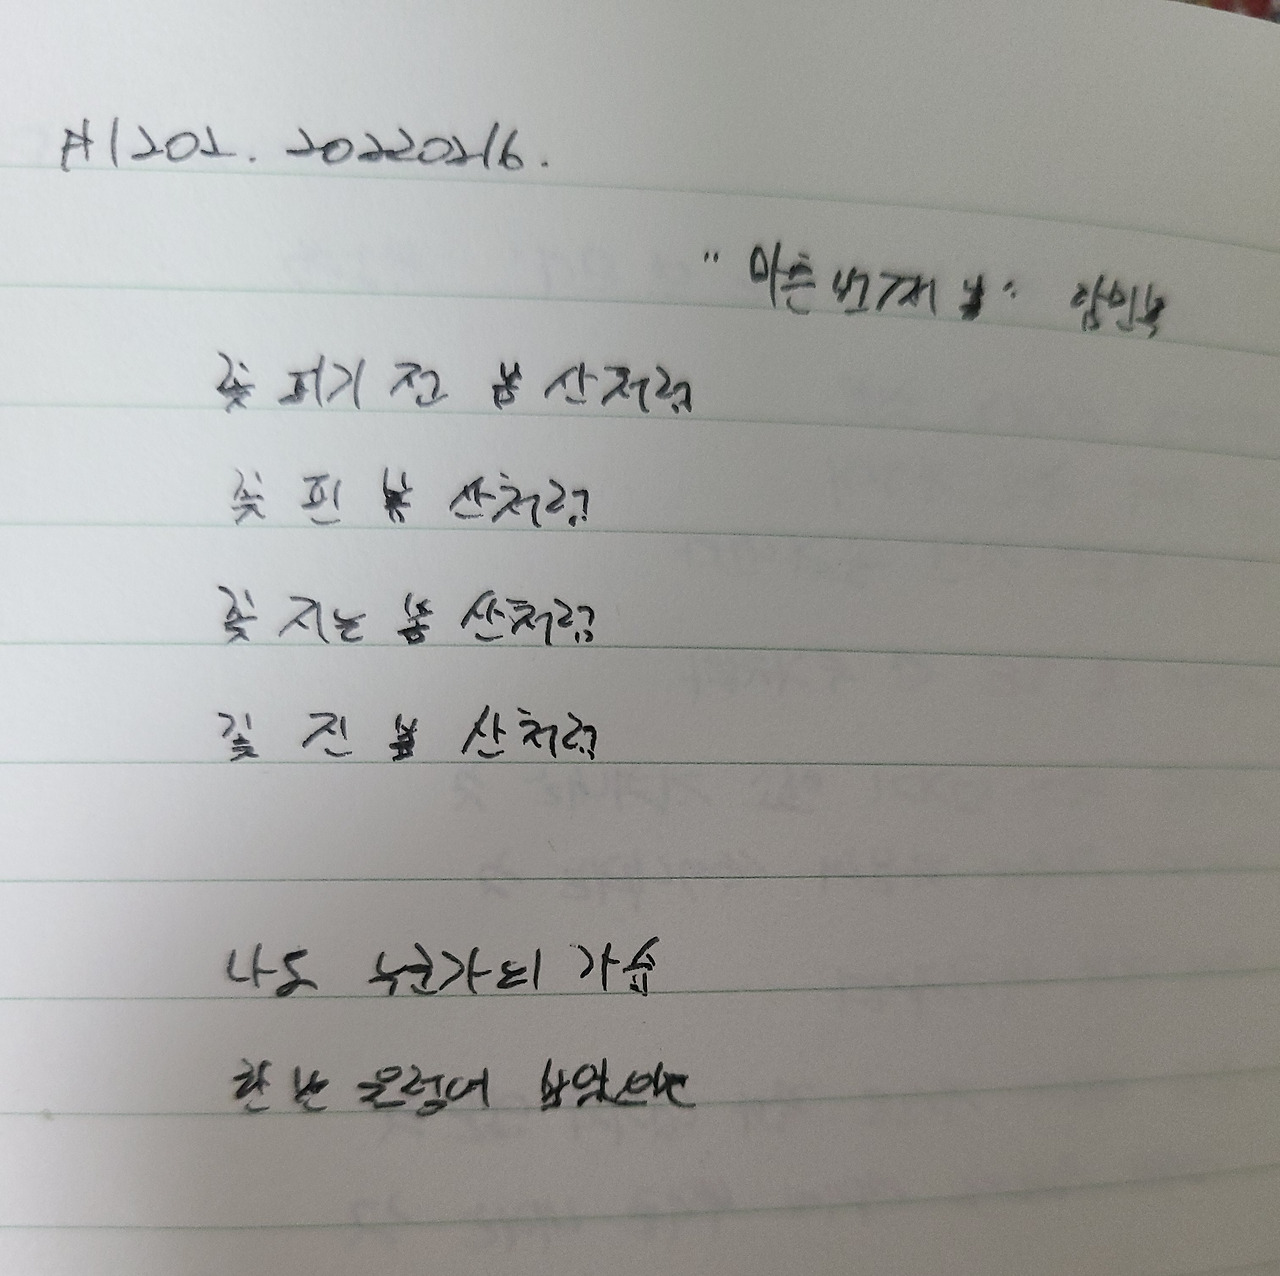 #1202. 20220216.
"마흔 번째 봄" 함민복
꽃 피기 전 봄 산처럼
꽃 핀 봄 산처럼
꽃 지는 봄 산처럼
꽃 진 봄 산처럼
나도 누군가의 가슴
한번 울렁여 보았으면